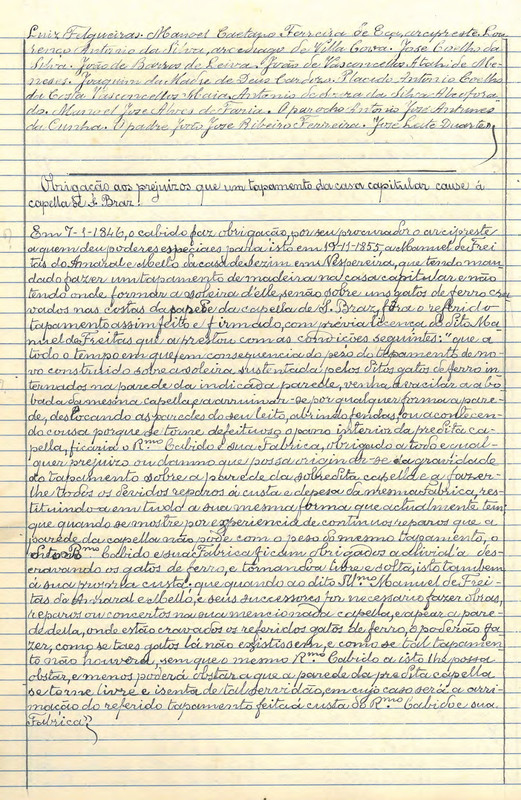 Luiz Filgueiras. Manoel Caetano Ferreira de Eça, arcypreste. Lou-
renço Antonio da Silva, arcediago de Villa Cova. José Coelho da
Silva. João de Barros de Leiva. João de Vasconcellos Athaide Me-
neses. Joaquim da Madre de Deus Cardoso. Placido Antonio Coelho
da Costa Vasconcellos Maia. Antonio de da Silva Alcofora-
do. Manoel José Alves de Faria. O parocho Antonio José Antunes
da Cunha. O padre João José Ribeiro Ferreira. José Leite Duarte"
Obrigação aos prejuizos que um tapamento da casa capitular cause á
capella de S. Braz.
Em 7-1-1846, o cabido faz obrigação, por seu procurador o arcipreste
a quem deu poderes especiaes para isto em 19-11-1855, a Manuel de Frei-
tas do Amaral e Mello da casa de Sezim em Nespereira, que tendo man-
dado fazer um tapamento de madeira na casa capitular e não
tendo onde formar a soleira d'elle senão sobre uns gatos de ferro cra-
vados nas costas da parede da capella de S. Braz, fôra o referido
tapamento assim feito e firmado, com prévia licença do dito Ma-
nuel de Freitas que a prestou com as condições seguintes: "que a
todo o tempo em que, em consequencia do peso do tapamento de no-
vo construido sobre a soleira sustentada pelos ditos gatos de ferro in-
ternados na parede da indicada parede, venha a vacilar a abo-
bada da mesma capella, e a arruinar-se por qualquer forma a pare-
de, deslocando as paredes do seu leito, abrindo fendas, ou acontecen-
do cousa porque se torne defeituoso o pano interior da predita ca-
pella, ficaria o R.mo Cabido e sua Fabrica, obrigado a todo e qual-
quer prejuizo ou damno que possa originar-se da gravidade
do tapamento sobre a parede da sobredita capella e a fazer-
lhe todos os devidos reparos á custa e depesa da mesma Fabrica, res-
tituindo-a em tudo a sua mesma forma que actualmente tem;
que quando se mostre por experiencia de continuos reparos que a
parede da capella não póde com o peso do mesmo tapamento, o
dito R.mo Cabido e sua Fabrica ficam obrigados a alivial-a des-
cravando os gatos de ferro, e tornando a livre e solta, isto tambem
á sua propria custa; que quando ao dito Ill.mo Manuel de Frei-
tas do Amaral e Mello, e seis successores for necessario fazer obras,
reparos ou concertos na sua mencionada capella, e apear a pare-
de della, onde estão cravados os referidos gatos de ferro, o poderão fa-
zer, como se taes gatos lá não existissem, e como se tal tapamen-
to não houvera, sem que o mesmo R.mo Cabido a isto lhe possa
obstar, e menos poderá obstar a que a parede da predita capella
se torne livre e isenta de tal servidão, em cujo caso será a arri-
mação do referido tapamento feita á custa do R.mo Cabido e sua
Fabrica"